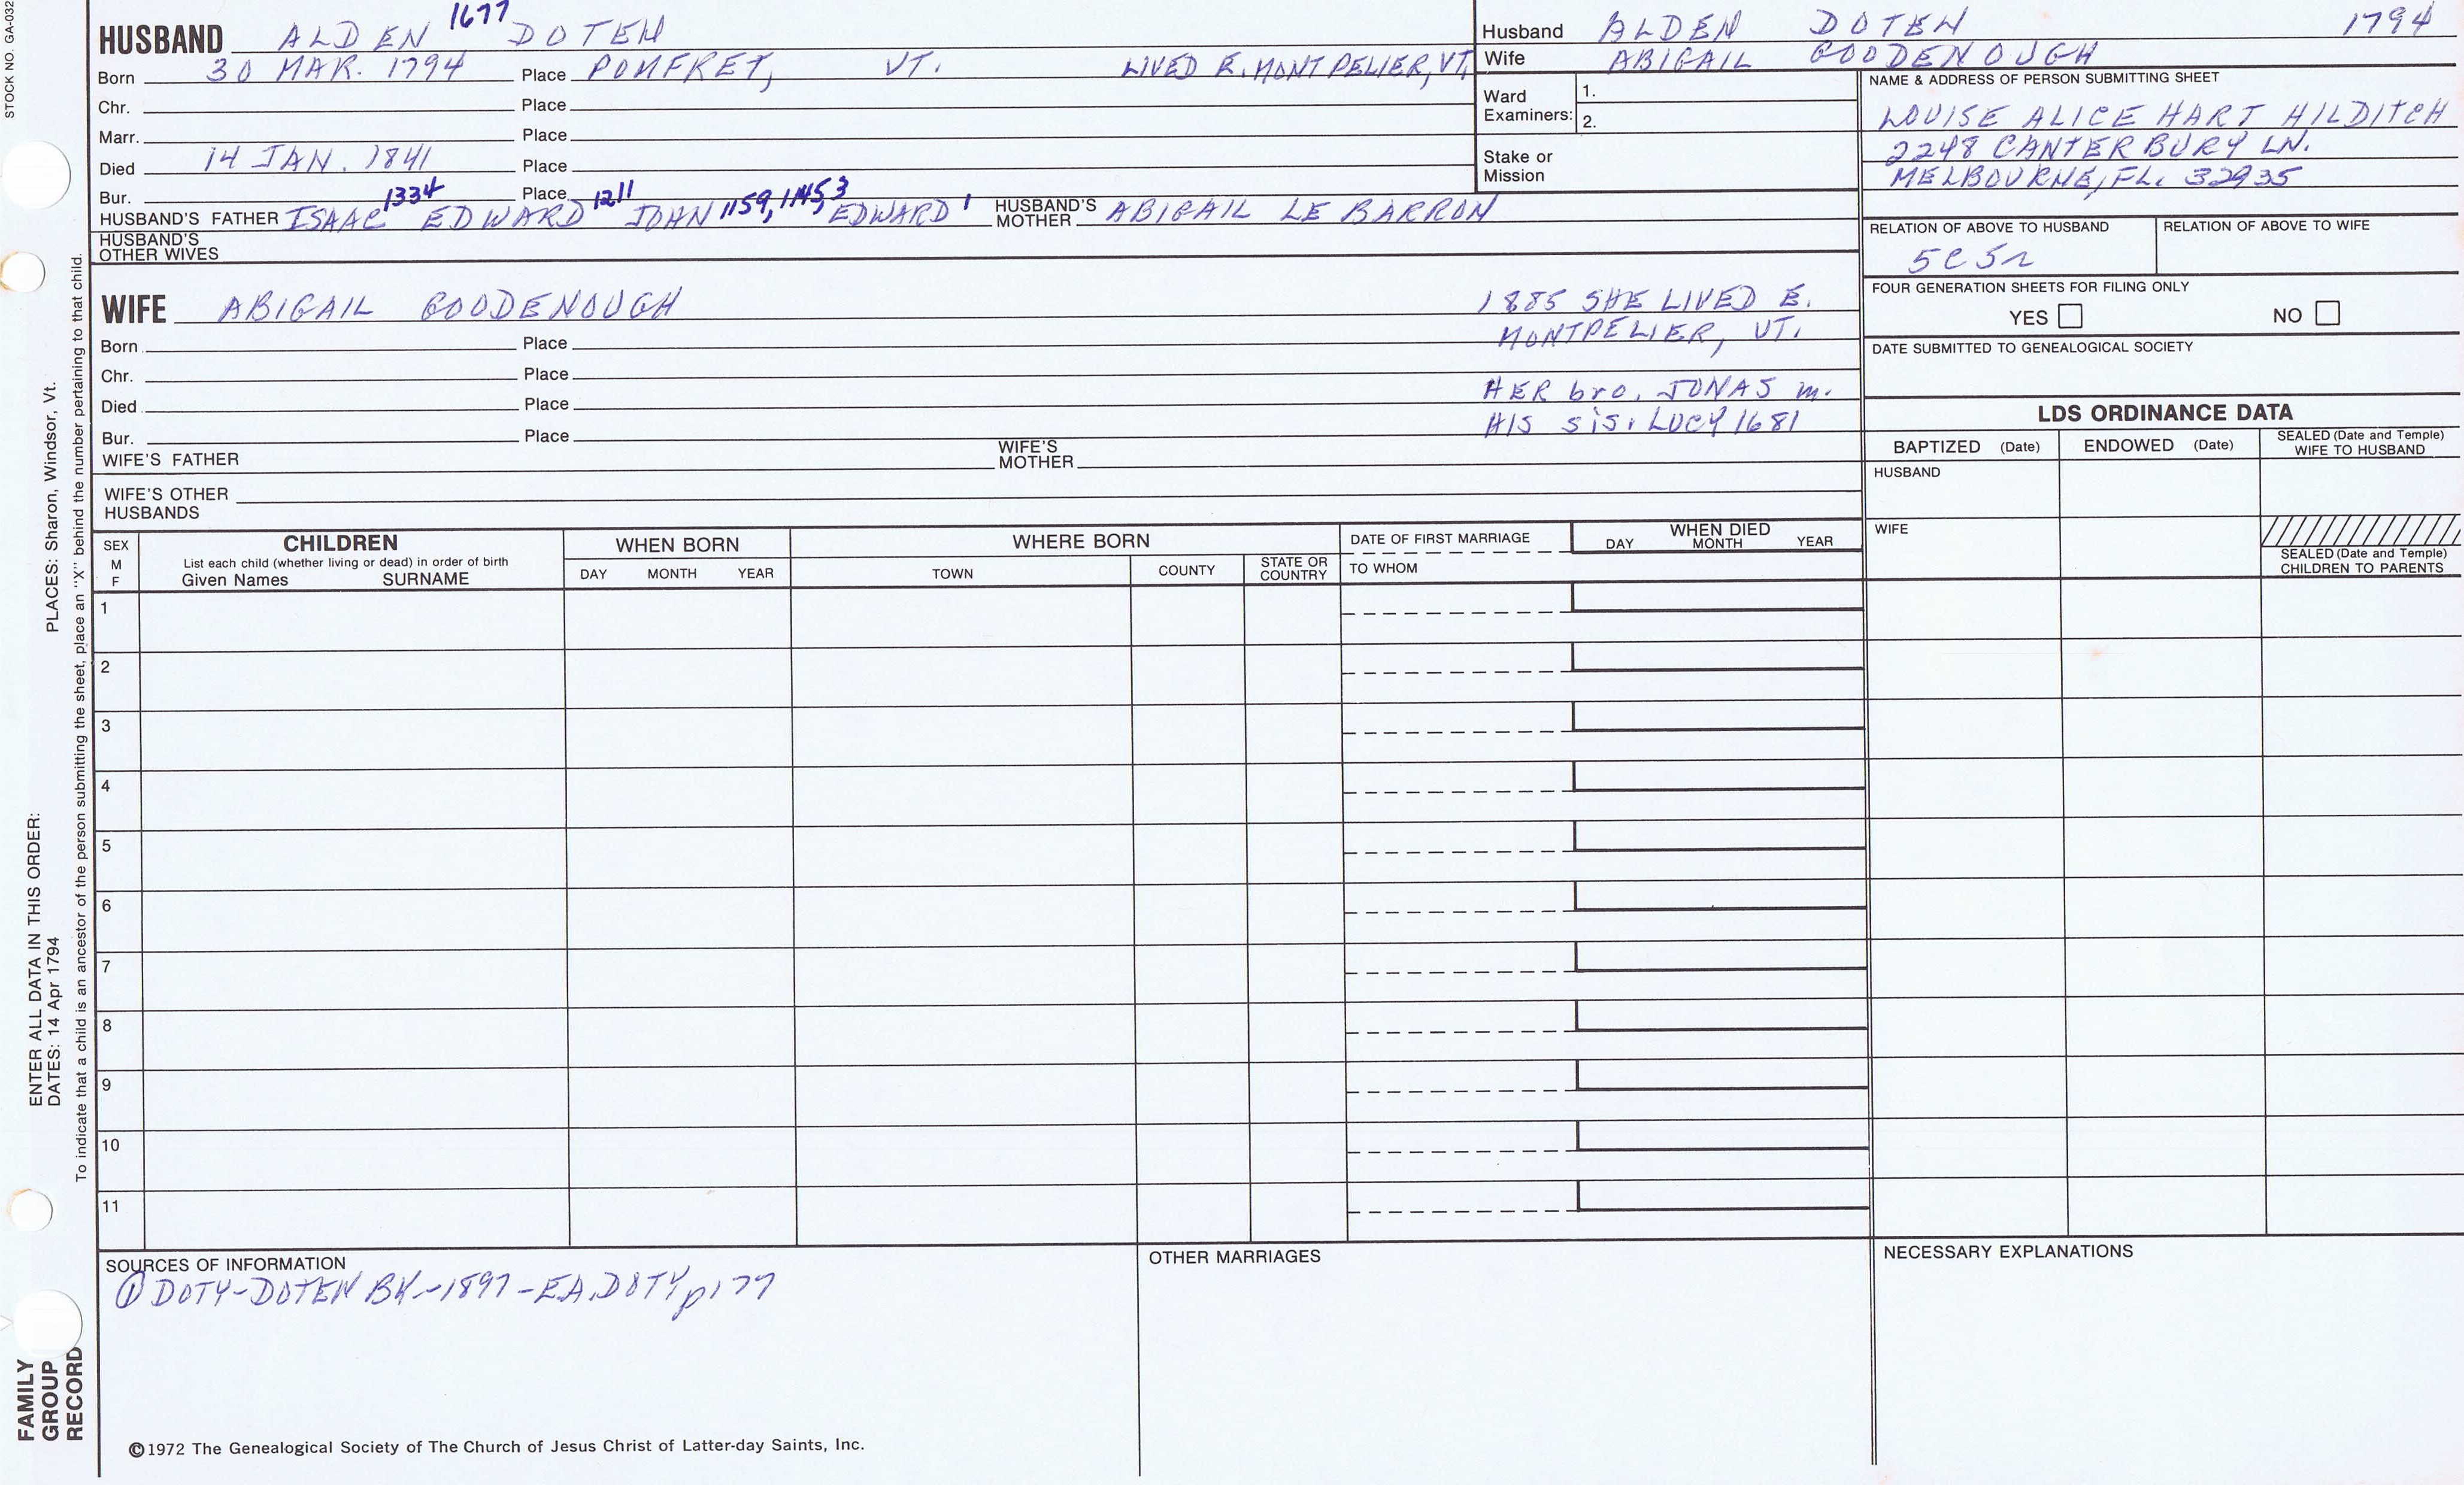 STOCK NO. GA-032
HUSBAND ALDEN 1677 DOTEN
Born 30 MAR. 1794 Place POMFRET, VT. LIVED E. MONTPELIER, VT.
Chr. Place
Marr. Place
Died 14 JAN. 1841 Place
Bur. Place
HUSBAND'S FATHER ISAAC 1334 EDWARD 1211 JOHN 1159, 1145, 3 EDWARD 1 HUSBAND'S MOTHER ABIGAIL LE BARRON
HUSBAND'S OTHER WIVES
Husband ALDEN DOTEN 1794
Wife ABIGAIL GOODENOUGH
Ward Examiners: 1.
2.
Stake or Mission
NAME & ADDRESS OF PERSON SUBMITTING SHEET
LOUISE ALICE HART HILDITCH
2248 CANTERBURY LN.
MELBOURNE, FL. 32935
RELATION OF ABOVE TO HUSBAND RELATION OF ABOVE TO WIFE
5C5r
FOUR GENERATION SHEETS FOR FILING ONLY
YES NO
DATE SUBMITTED TO GENEALOGICAL SOCIETY
WIFE ABIGAIL GOODENOUGH
1885 SHE LIVED E.
MONTPELIER, VT.
Born Place
Chr. Place
HER bro. JONAS m.
HIS sis. LUCY 1681
Died Place
Bur. Place
WIFE'S FATHER WIFE'S MOTHER
WIFE'S OTHER HUSBANDS
LDS ORDINANCE DATA
BAPTIZED (Date) ENDOWED (Date) SEALED (Date and Temple) WIFE TO HUSBAND
HUSBAND
WIFE
SEALED (Date and Temple) CHILDREN TO PARENTS
SEX M F
CHILDREN
List each child (whether living or dead) in order of birth
Given Names SURNAME
WHEN BORN
DAY MONTH YEAR
WHERE BORN
TOWN COUNTY STATE OR COUNTRY
DATE OF FIRST MARRIAGE
TO WHOM
WHEN DIED
DAY MONTH YEAR
1
2
3
4
5
6
7
8
9
10
11
SOURCES OF INFORMATION
① DOTY-DOTEN BK-1897-E.A. DOTY p177
OTHER MARRIAGES
NECESSARY EXPLANATIONS
©1972 The Genealogical Society of The Church of Jesus Christ of Latter-day Saints, Inc.
FAMILY GROUP RECORD
ENTER ALL DATA IN THIS ORDER:
DATES: 14 Apr 1794 PLACES: Sharon, Windsor, Vt.
To indicate that a child is an ancestor of the person submitting the sheet, place an "X" behind the number pertaining to that child.